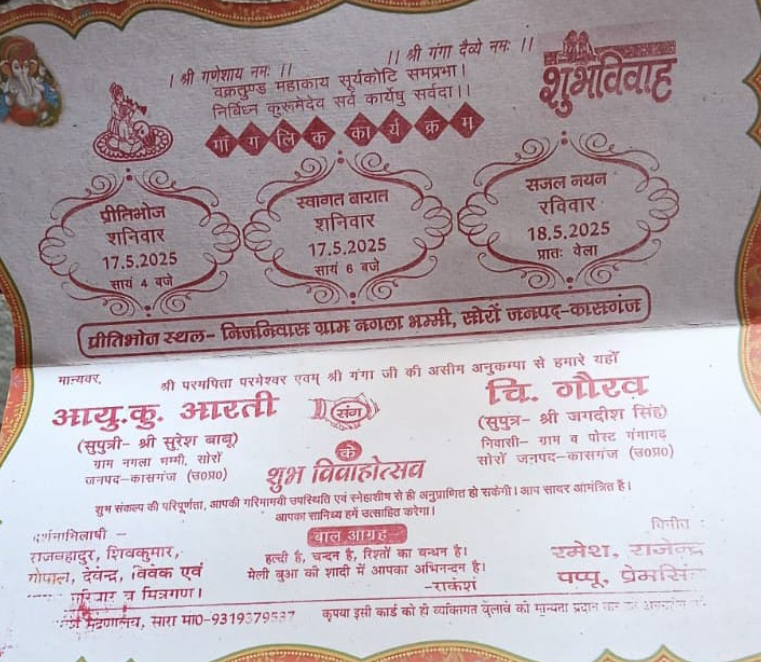 । श्री गणेशाय नमः ।।
।। श्री गंगा दैव्ये नमः ।।
वक्रतुण्ड महाकाय सूर्यकोटि समप्रभा।
निर्विघ्न कुरूमेदेव सर्व कार्येषु सर्वदा।।
शुभविवाह
मांगलिक कार्यक्रम
प्रीतिभोज
शनिवार
17.5.2025
सायं 4 बजे
स्वागत बारात
शनिवार
17.5.2025
सायं 6 बजे
सजल नयन
रविवार
18.5.2025
प्रातः वेला
प्रीतिभोज स्थल- निजनिवास ग्राम नगला भम्मी, सोरों जनपद-कासगंज
मान्यवर,
श्री परमपिता परमेश्वर एवम् श्री गंगा जी की असीम अनुकम्पा से हमारे यहाँ
आयु.कु. आरती
(सुपुत्री- श्री सुरेश बाबू)
ग्राम नगला भम्मी, सोरों
जनपद-कासगंज (उ०प्र०)
संग
चि. गौरव
(सुपुत्र- श्री जगदीश सिंह)
निवासी- ग्राम व पोस्ट गंगागढ़
सोरों जनपद-कासगंज (उ०प्र०)
के
शुभ विवाहोत्सव
शुभ संकल्प की परिपूर्णता, आपकी गरिमामयी उपस्थिति एवं स्नेहाशीष से ही अनुप्राणित हो सकेगी। आप सादर आमंत्रित हैं।
आपका सानिध्य हमें उत्साहित करेगा।
दर्शनाभिलाषी –
राजबहादुर, शिवकुमार,
गोपाल, देवेन्द्र, विवेक एवं
परिवार व मित्रगण।
बाल आग्रह
हल्दी है, चन्दन है, रिश्तों का बन्धन है।
मेली बुआ की शादी में आपका अभिनन्दन है।
-राकेश
विनीत :
रमेश, राजेन्द्र
पप्पू, प्रेमसिंह
मुद्रणालय, सोरों मो0-9319379537
कृपया इसी कार्ड को ही व्यक्तिगत बुलावे की मान्यता प्रदान